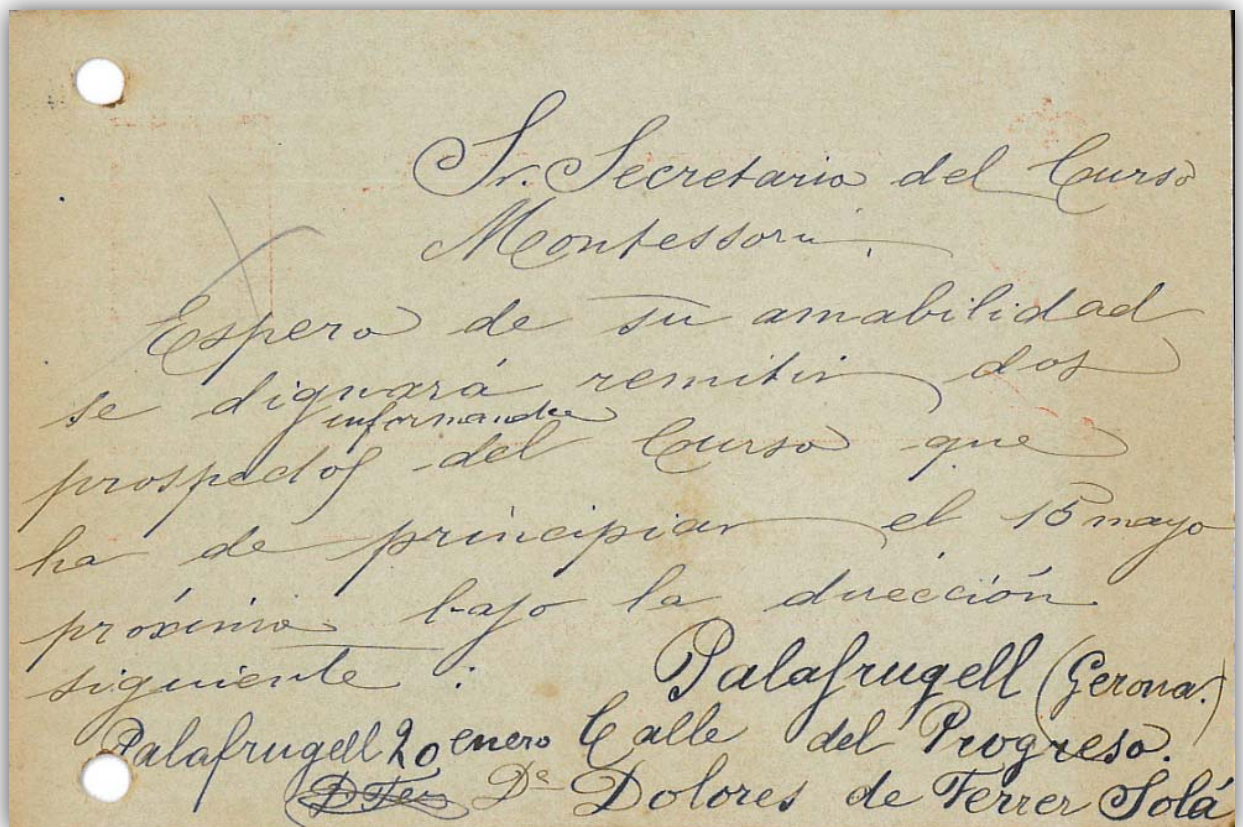 Sr. Secretario del Curso
Montessori.
Espero de su amabilidad
se dignará remitir dos
informando
prospectos del Curso que
ha de principiar el 15 mayo
próximo bajo la dirección
siguiente :
Palafrugell (Gerona.)
Palafrugell 20 enero Calle del Progreso.
Dª Dolores de Ferrer Solá